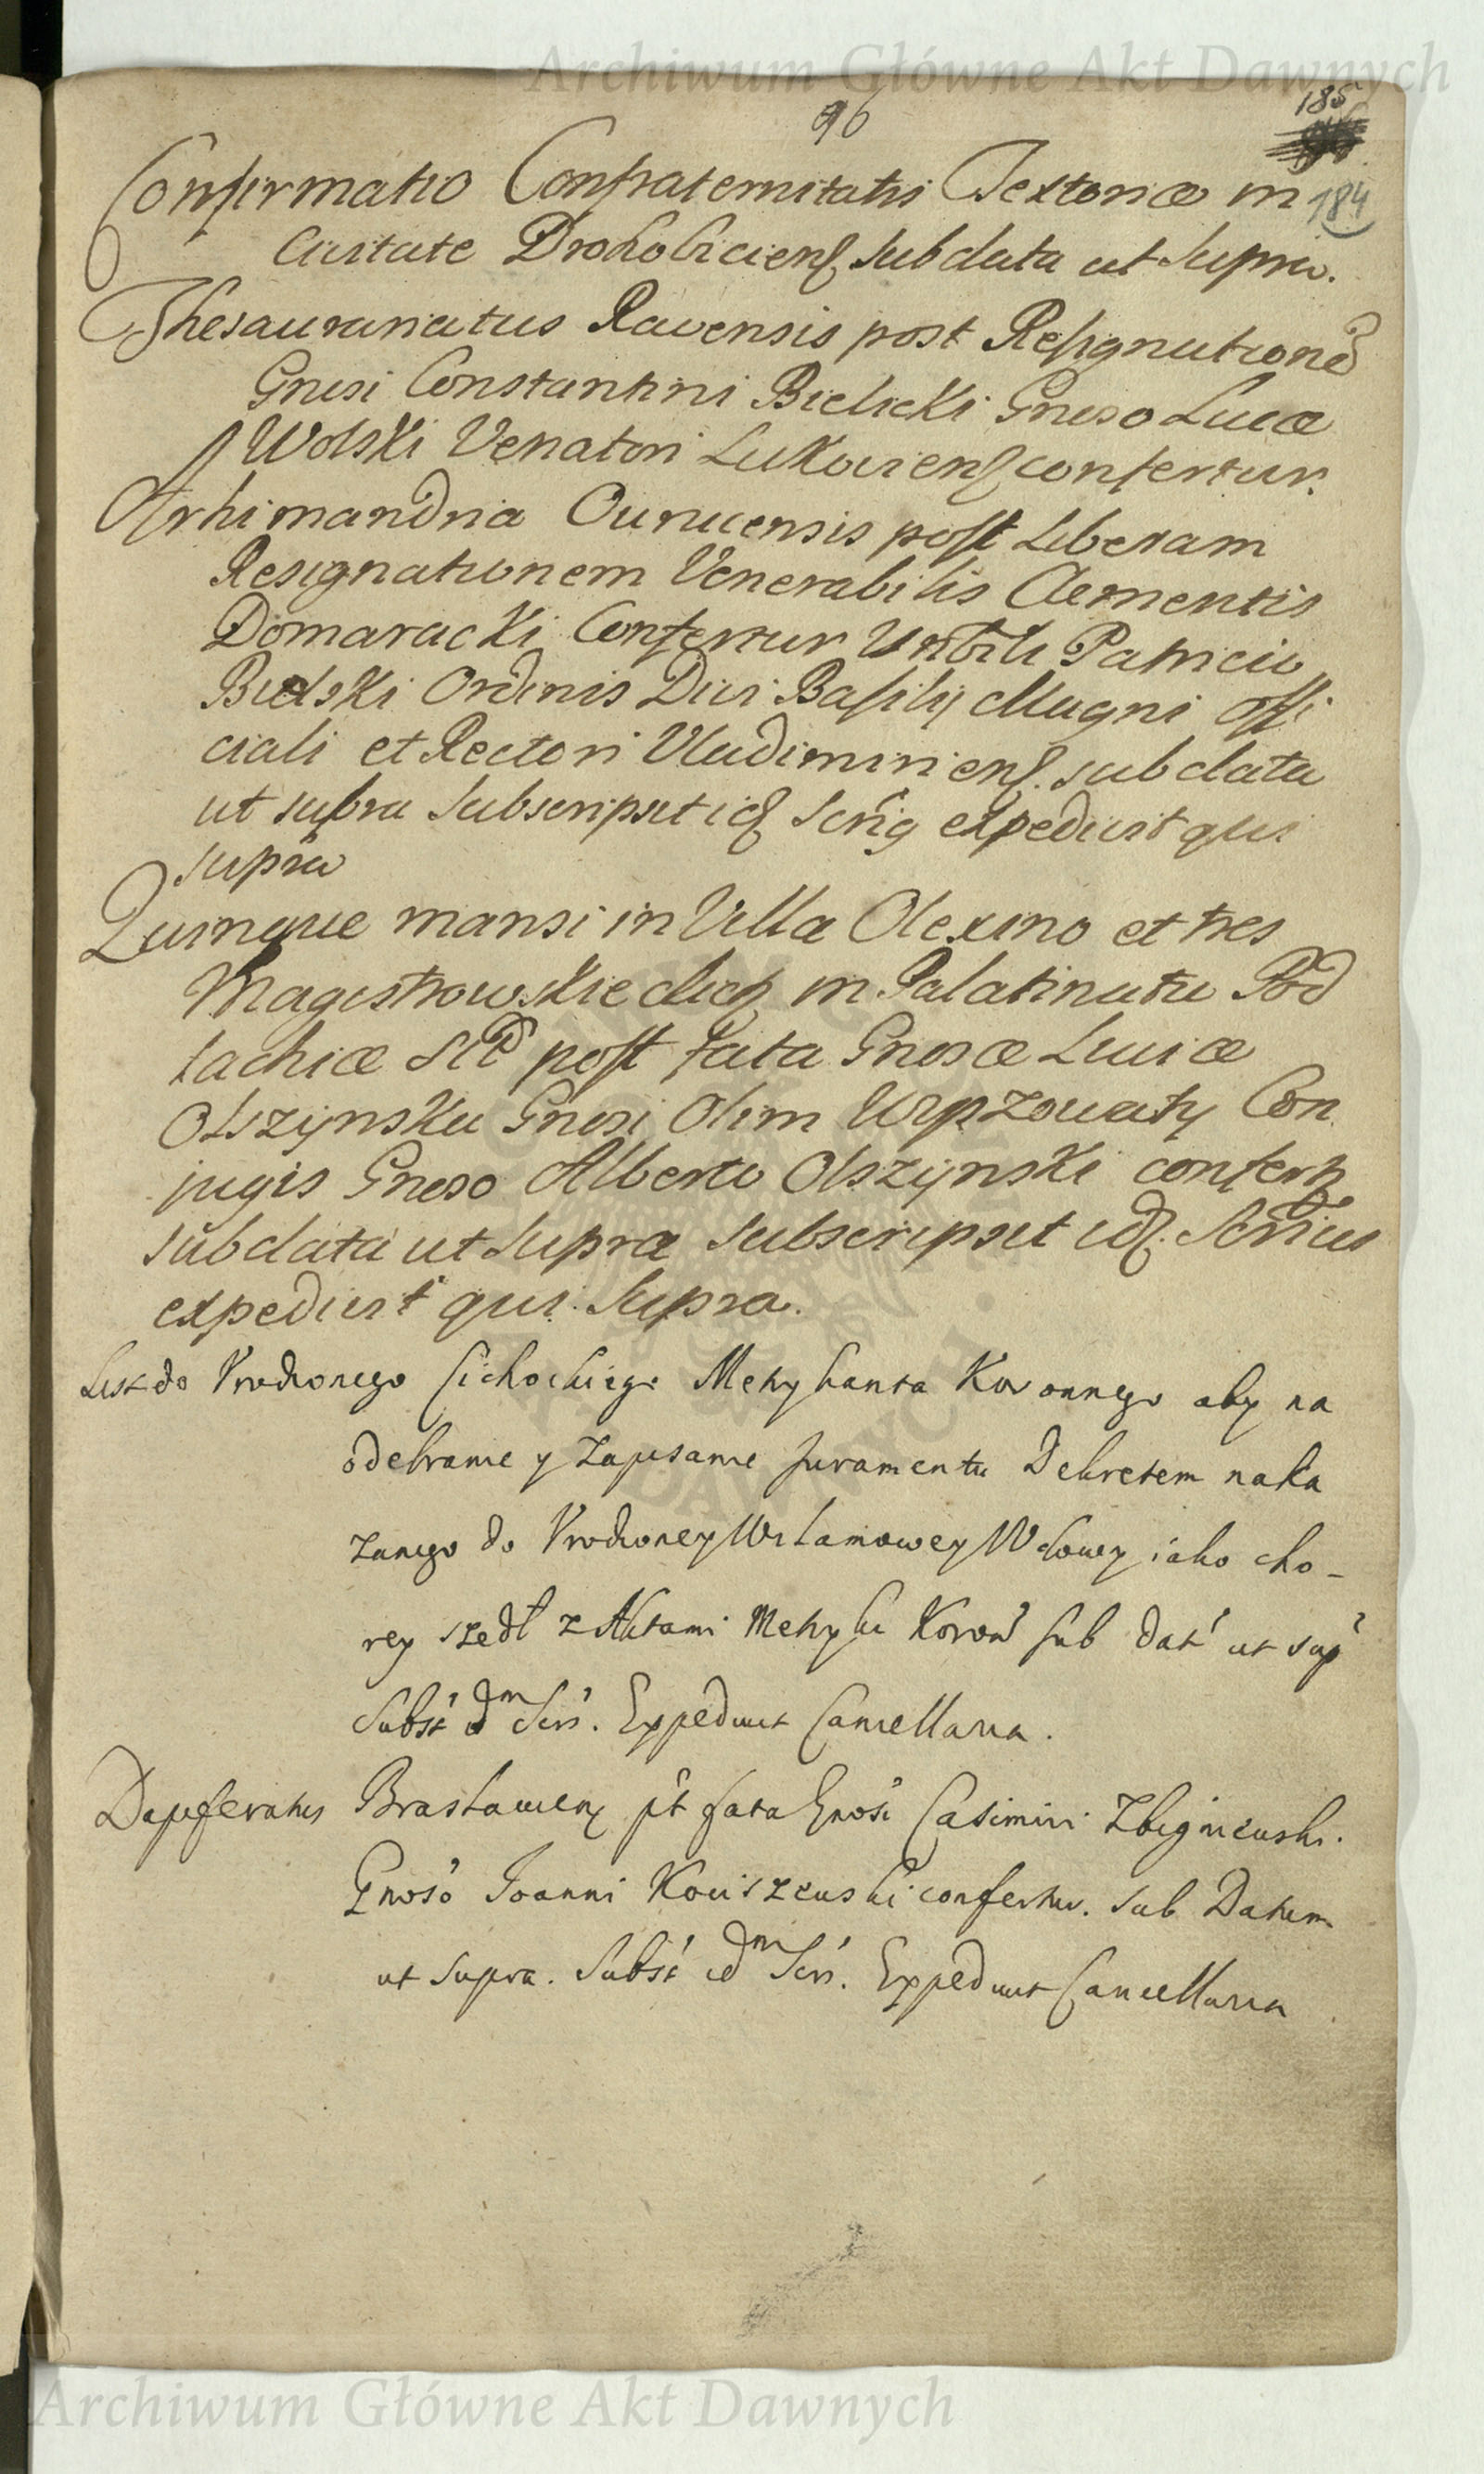 Archiwum Główne Akt Dawnych
96
185
184
Confirmatio Confraternitatis Textoriæ in
Civitate Drohobiciens sub data ut supra.
Thesaurariatus Ravensis post Resignatione
Gnosi Constantini Bielicki Gnoso Lucæ
Wolski Venatori Lukoviens confertur.
Arhimandria Ovrucensis post Liberam
Resignationem Venerabilis Clementis
Domaracki Confertur Patricio
Bielski Ordinis Divi Basilij Magni Offi
ciali et Rectori Vladimiriens. sub data
ut supra Subscripsit expedivit qui
supra
Quinque mansi in Villa Olexino et tres
Magistrowskie dicti in Palatinatu Pod
lachiæ post fata Gnosæ Luviæ
Olszynska Gnosi Olim Con
jugis Gnoso Alberto Olszynski confert
sub data ut supra Subscripsit id. Serius
expedivit qui supra.
List do Urodzonego Cichockiego Metrykanta Koronnego aby na
odebranie y zapisanie Juramentu Dekretem naka
zanego do Urodzoney Wdowy iako cho-
rey szedł z Aktami Metryki Koron sub dat ut sup
Subst idm Sers. Expedivit Cancellaria.
Dapiferatus Braslaviens pt fata Gnosi Casimiri Zbigniewski.
Gnoso Joanni Kowiszewski confertur. sub Datum
ut supra. Subst idm Sers. Expedivit Cancellaria
Archiwum Główne Akt Dawnych